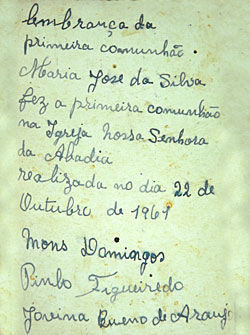 Lembrança da
primeira comunhão.
Maria Jose da Silva
fez a primeira comunhão
na Igreja Nossa Senhora
da Abadia
realizada no dia 22 de
Outubro de 1961
Mons Domingos
Pinto Figueiredo
Jovina Bueno de Araujo